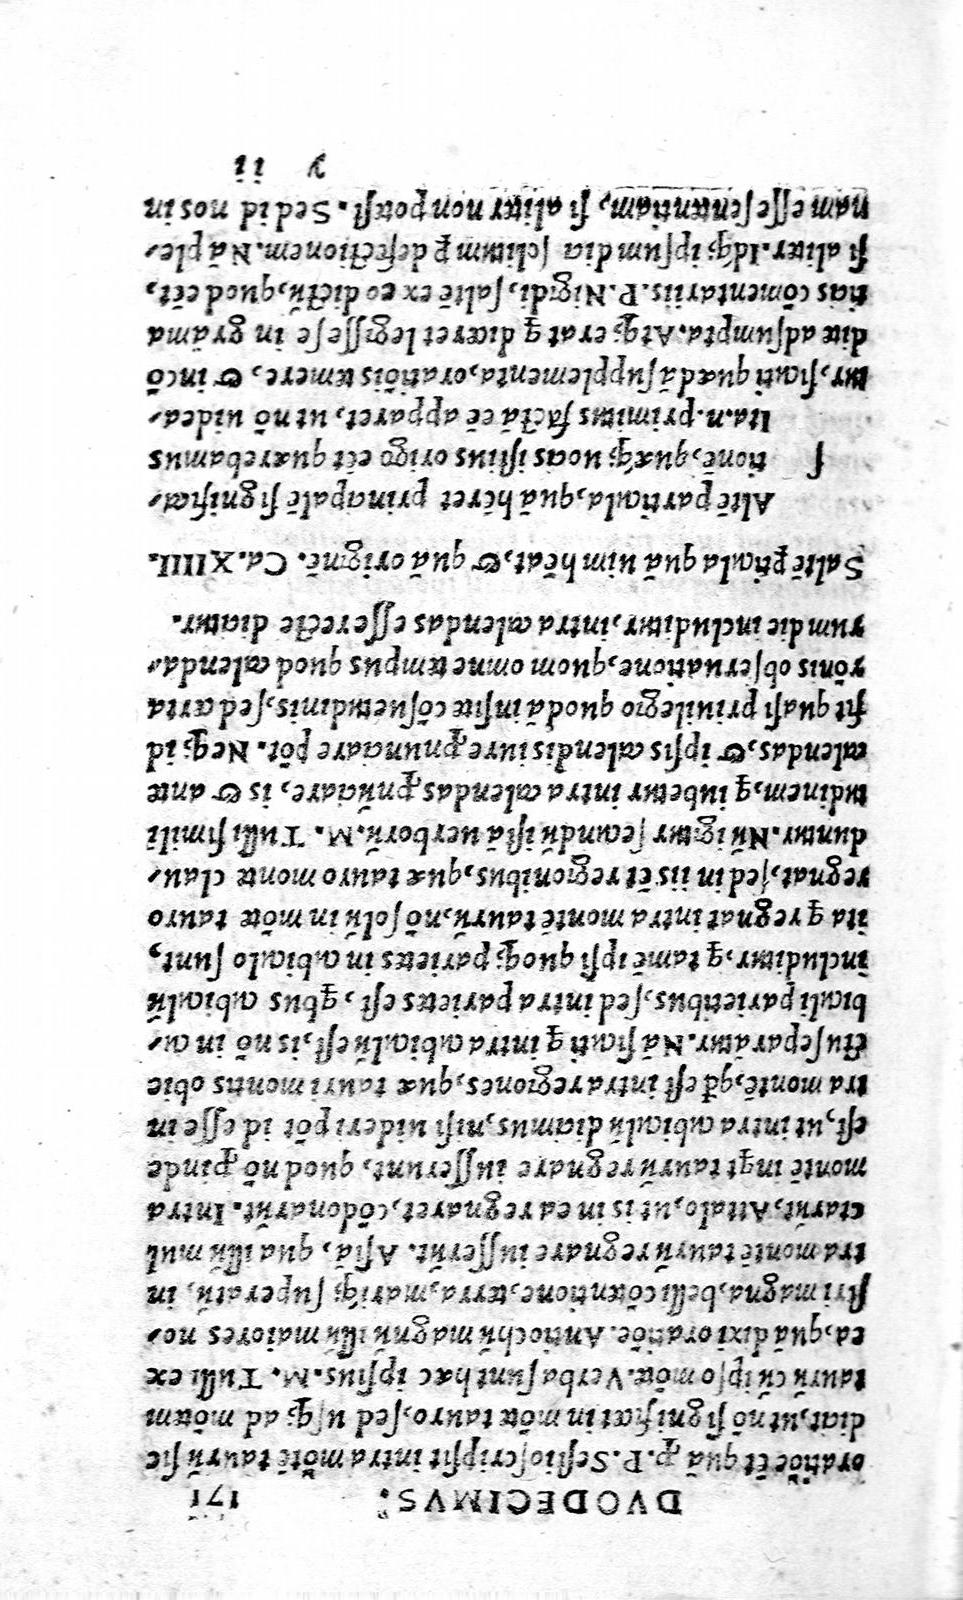 DVODECIMVS. 171
oratiōe ēt quā ꝓ. P. Sestio scripsit intra mōtē taurū sic
dicit, ut nō significet in mōte tauro, sed usq; ad mōtem
taurū cū ipso mōte. Verba sunt hæc ipsius. M. Tulli ex
ea, quā dixi oratiōe. Antiochū magnū illū maiores no/
stri magna, belli cōtentione, terra, mariq; superatū, in
tra montē taurū regnare iusserūt. Asiā, qua illū mul
ctarūt, Attalo, ut is in ea regnaret, cōdonarūt. Intra
montē inq̄t taurū regnare iusserunt, quod nō ꝓinde
est, ut intra cubiculū dicimus, nisi uideri pōt id esse in
tra montē, qd̄ est intra regiones, quæ tauri montis obie
ctu separātur. Nā sicuti q̄ intra cubiculū est, is nō in cu/
biculi parietibus, sed intra parietes est, q̄bus cubiculū
includitur, q̄ tamē ipsi quoq; parietes in cubiculo sunt,
ita q̄ regnat intra montē taurū, nō solū in mōte tauro
regnat, sed in iis ēt regionibus, quæ tauro monte clau/
duntur. Nū igitur secundū istā uerborū. M. Tulli simili
tudinem, q̄ iubetur intra calendas ꝓnūciare, is & ante
calendas, & ipsis calendis iure ꝓnunciare pōt. Neq; id
fit quasi priuilegio quodā inscitæ cōsuetudinis, sed certa
rōnis obseruatione, quom omne tempus quod calenda/
rum die includitur, intra calendas esse recte dicitur.
Saltē ꝑticula quā uim hēat, & quā originē. Ca. XIIII.
Altē particula, quā hēret principalē significa/
s tionē, quæq; uocis istius origo eēt quærebamus
Ita. n. primitus factā eē apparet, ut nō uidea/
tur, sicuti quædā supplementa, orationis temere, & incō
dite adsumpta. Atq; erat q̄ diceret legisse se in grāma
ticis cōmentariis. P. Nigidi, saltē ex eo dictū, quod eēt,
si aliter. Idq; ipsum dia solitum ꝑ defectionem. Nā ple/
nam esse sententiam, si aliter non potest. Sed id nos in
y ii